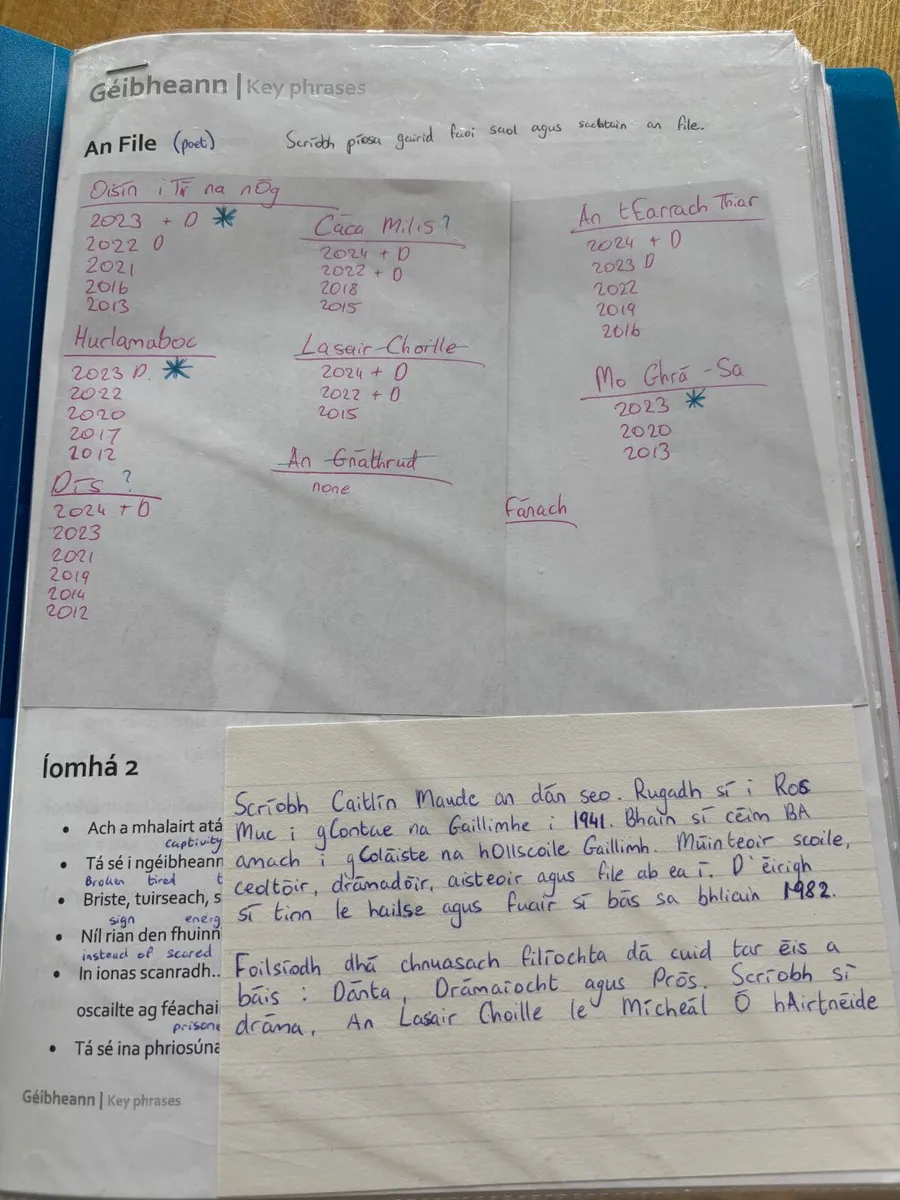 Géibheann | Key phrases
An File (poet) Scríobh píosa gairid faoi saol agus saothair an file.
Oisín i Tír na nÓg
2023 + D *
2022 D
2021
2016
2013
Hurlamaboc
2023 D. *
2022
2020
2017
2012
Dís ?
2024 + D
2023
2021
2019
2014
2012
Cáca Milis ?
2024 + D
2022 + D
2018
2015
Lasair Choille
2024 + D
2022 + D
2015
An Gnáthrud
none
An tEarrach Thiar
2024 + D
2023 D
2022
2019
2016
Mo Ghrá-Sa
2023 *
2020
2013
Fánach
Íomhá 2
• Ach a mhalairt atá
captivity
• Tá sé i ngéibheann
Broken tired
• Briste, tuirseach, s
sign energ
• Níl rian den fhuinn
instead of scared
• In ionas scanradh..
oscailte ag féachai
prisone
• Tá sé ina phriosúna
Géibheann | Key phrases
Scríobh Caitlín Maude an dán seo. Rugadh sí i Ros
Muc i gContae na Gaillimhe i 1941. Bhain sí céim BA
amach i gColáiste na hOllscoile Gaillimh. Múinteoir scoile,
ceoltóir, drámadóir, aisteoir agus file ab ea í. D'éirigh
sí tinn le hailse agus fuair sí bás sa bhliain 1982.
Foilsíodh dhá chnuasach filíochta dá cuid tar éis a
báis : Dánta, Drámaíocht agus Prós. Scríobh sí
dráma, An Lasair Choille le Mícheál Ó hAirtnéide